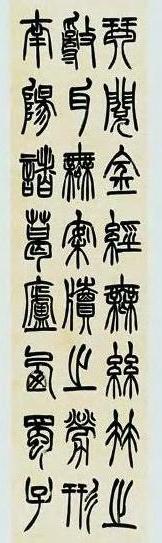 琴閱金經無絲竹之
亂耳無案牘之勞形
南陽諸葛廬西蜀子